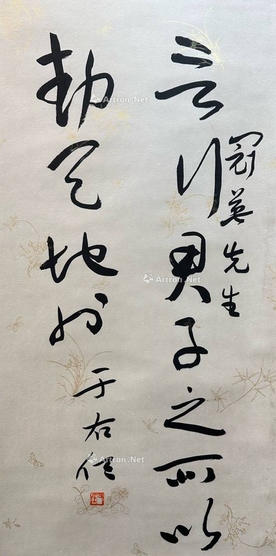 冠英先生
言行君子之所以
動天地也
于右任
Artron.Net
Artron.Net
Artron.Net